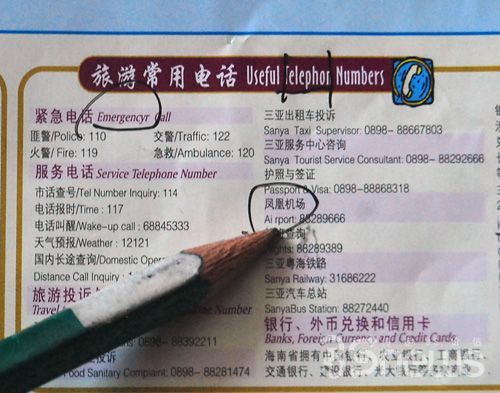 旅游常用电话 Useful Telephon Numbers
紧急电话 Emergencyr Call
匪警/Police: 110 交警/Traffic: 122
火警/ Fire: 119 急救/Ambulance: 120
服务电话 Service Telephone Number
市话查号/Tel Number Inquiry: 114
电话报时/Time : 117
电话叫醒/Wake-up call : 68845333
天气预报/Weather : 12121
国内长途查询/Domestic Oper
Distance Call Inquiry :
旅游投诉
Travel Number
ns: 0898- 88392211
投诉
Food Sanitary Complaint: 0898- 88281474
三亚出租车投诉
Sanya Taxi Supervisor: 0898- 88667803
三亚服务中心咨询
Sanya Tourist Service Consultant: 0898- 88292666
护照与签证
Passport & Visa: 0898-88868318
凤凰机场
Ai rport: 88289666
查询
ghts: 88289389
三亚粤海铁路
Sanya Railway: 31686222
三亚汽车总站
SanyaBus Station: 88272440
银行、外币兑换和信用卡
Banks, Foreign Currency and Credit Cards
海南省拥有中国银行、农业银行、工商银行、
交通银行、建设银行、光大银行等多家商业